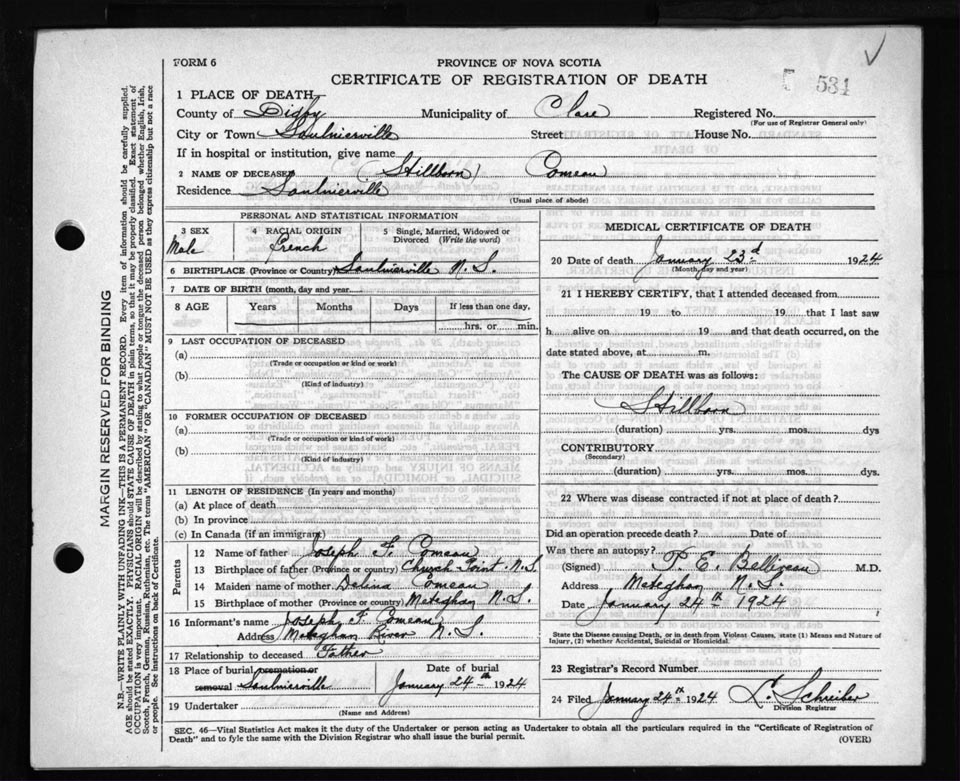 FORM 6
PROVINCE OF NOVA SCOTIA
CERTIFICATE OF REGISTRATION OF DEATH
534
1 PLACE OF DEATH—
County of Digby Municipality of Clare Registered No.
(For use of Registrar General only)
City or Town Saulnierville Street House No.
If in hospital or institution, give name
2 NAME OF DECEASED (Stillborn) Comeau
Residence Saulnierville
(Usual place of abode)
PERSONAL AND STATISTICAL INFORMATION
3 SEX 4 RACIAL ORIGIN 5 Single, Married, Widowed or
Divorced (Write the word)
Male French
6 BIRTHPLACE (Province or Country) Saulnierville N. S.
7 DATE OF BIRTH (month, day and year
8 AGE Years Months Days If less than one day,
hrs. or min.
9 LAST OCCUPATION OF DECEASED
(a)
(Trade or occupation or kind of work)
(b)
(Kind of industry)
10 FORMER OCCUPATION OF DECEASED
(a)
(Trade or occupation or kind of work)
(b)
(Kind of industry)
11 LENGTH OF RESIDENCE (In years and months)
(a) At place of death
(b) In province
(c) In Canada (if an immigrant)
Parents
12 Name of father Joseph F. Comeau
13 Birthplace of father (Province or country) Church Point N.S.
14 Maiden name of mother Delina Comeau
15 Birthplace of mother (Province or country) Meteghan N.S.
16 Informant's name Joseph F. Comeau
Address Meteghan River N. S.
17 Relationship to deceased Father
18 Place of burial cremation or
removal Saulnierville
Date of burial
January 24th 1924
19 Undertaker
(Name and Address)
MEDICAL CERTIFICATE OF DEATH
20 Date of death January 23d 1924
(Month, day and year)
21 I HEREBY CERTIFY, that I attended deceased from
19 to 19 that I last saw
h alive on 19 and that death occurred, on the
date stated above, at m.
The CAUSE OF DEATH was as follows:
Stillborn
(duration) yrs. mos. dys
CONTRIBUTORY
(Secondary)
(duration) yrs. mos. dys.
22 Where was disease contracted if not at place of death?
Did an operation precede death? Date of
Was there an autopsy?
(Signed) P. E. Belliveau M.D.
Address Meteghan N. S.
Date January 24th 1924
State the Disease causing Death, or in death from Violent Causes, state (1) Means and Nature of
Injury, (2) whether Accidental, Suicidal or Homicidal.
23 Registrar's Record Number
24 Filed January 24th 1924 L. Schreiber
Division Registrar
SEC. 46—Vital Statistics Act makes it the duty of the Undertaker or person acting as Undertaker to obtain all the particulars required in the "Certificate of Registration of
Death" and to fyle the same with the Division Registrar who shall issue the burial permit.
(OVER)
MARGIN RESERVED FOR BINDING
N.B.—WRITE PLAINLY WITH UNFADING INK—THIS IS A PERMANENT RECORD. Every item of information should be carefully supplied.
AGE should be stated EXACTLY. PHYSICIANS should STATE CAUSE OF DEATH in plain terms, so that it may be properly classified. Exact statement of
OCCUPATION is very important. RACIAL ORIGIN will be described by stating to what people or tongue the deceased person belonged whether English, Irish,
Scotch, French, German, Russian, Ruthenian, etc. The terms "AMERICAN" or "CANADIAN" MUST NOT BE USED as they express citizenship but not a race
or people. See instructions on back of Certificate.